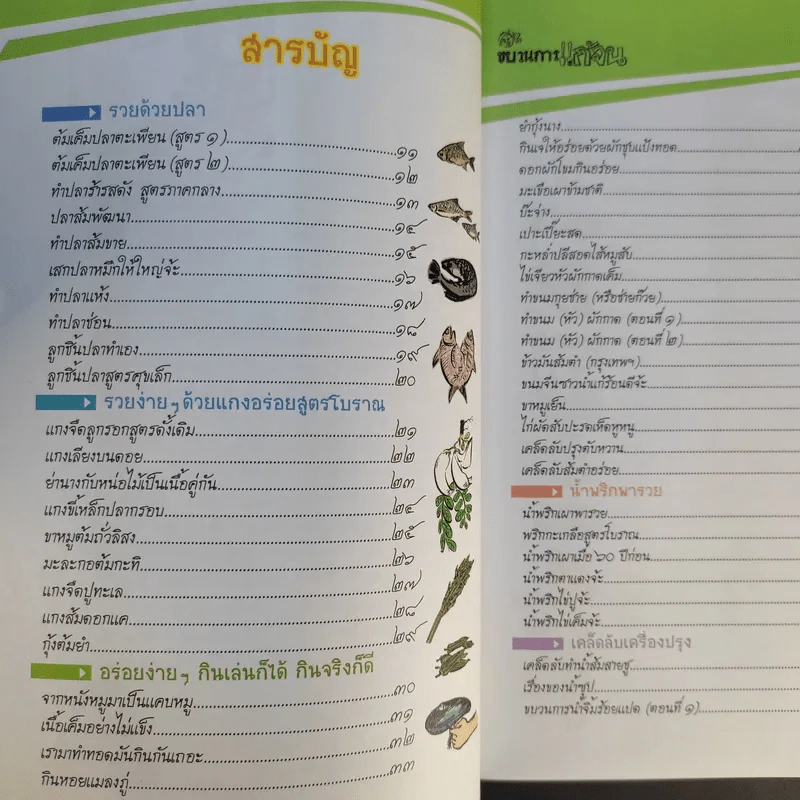 สารบัญ
รวยด้วยปลา
ต้มเค็มปลาตะเพียน (สูตร ๑)....๑๑
ต้มเค็มปลาตะเพียน (สูตร ๒)....๑๒
ทำปลาร้ารสดัง สูตรภาคกลาง....๑๓
ปลาส้มพัฒนา....๑๔
ทำปลาส้มขาย....๑๕
เสกปลาหมึกให้ใหญ่จ้ะ....๑๖
ทำปลาแห้ง....๑๗
ทำปลาช่อน....๑๘
ลูกชิ้นปลาทำเอง....๑๙
ลูกชิ้นปลาสูตรศุขเล็ก....๒๐
รวยง่าย ๆ ด้วยแกงอร่อยสูตรโบราณ
แกงจืดลูกรอกสูตรดั้งเดิม....๒๑
แกงเลียงบนดอย....๒๒
ย่านางกับหน่อไม้เป็นเนื้อคู่กัน....๒๓
แกงขี้เหล็กปลากรอบ....๒๔
ขาหมูต้มถั่วลิสง....๒๕
มะละกอต้มกะทิ....๒๖
แกงจืดปูทะเล....๒๗
แกงส้มดอกแค....๒๘
กุ้งต้มยำ....๒๙
อร่อยง่าย ๆ กินเล่นก็ได้ กินจริงก็ดี
จากหนังหมูมาเป็นแคบหมู....๓๐
เนื้อเค็มอย่างไม่แข็ง....๓๑
เรามาทำทอดมันกินกันเถอะ....๓๒
กินหอยแมลงภู่....๓๓
ขบวนการแก้จน
ยำกุ้งนาง....
กินเจให้อร่อยด้วยผักชุบแป้งทอด....
ดอกผักโขมกินอร่อย....
มะเขือเผาข้ามชาติ....
บ๊ะจ่าง....
เปาะเปี๊ยะสด....
กะหล่ำปลีสอดไส้หมูสับ....
ไข่เจียวหัวผักกาดเค็ม....
ทำขนมกุยช่าย (หรือช่ายก๊วย)....
ทำขนม (หัว) ผักกาด (ตอนที่ ๑)....
ทำขนม (หัว) ผักกาด (ตอนที่ ๒)....
ข้าวมันส้มตำ (กรุงเทพฯ)....
ขนมจีนซาวน้ำแก้ร้อนดีจ้ะ....
ขาหมูเย็น....
ไก่ผัดสับปะรดเห็ดหูหนู....
เคล็ดลับปรุงตับหวาน....
เคล็ดลับส้มตำอร่อย....
น้ำพริกพารวย
น้ำพริกเผาพารวย....
พริกกะเกลือสูตรโบราณ....
น้ำพริกเผาเมื่อ ๖๐ ปีก่อน....
น้ำพริกตาแดงจ้ะ....
น้ำพริกไข่ปูจ้ะ....
น้ำพริกไข่เค็มจ้ะ....
เคล็ดลับเครื่องปรุง
เคล็ดลับทำน้ำส้มสายชู....
เรื่องของน้ำซุป....
ขบวนการน้ำจิ้มร้อยแปด (ตอนที่ ๑)....